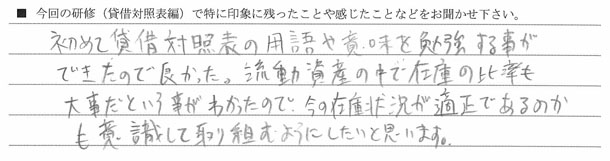 ■ 今回の研修（貸借対照表編）で特に印象に残ったことや感じたことなどをお聞かせ下さい。
初めて貸借対照表の用語や意味を勉強する事が
できたので良かった。流動資産の中で在庫の比率も
大事だという事がわかったので、今の在庫状況が適正であるのか
も意識して取り組むようにしたいと思います。